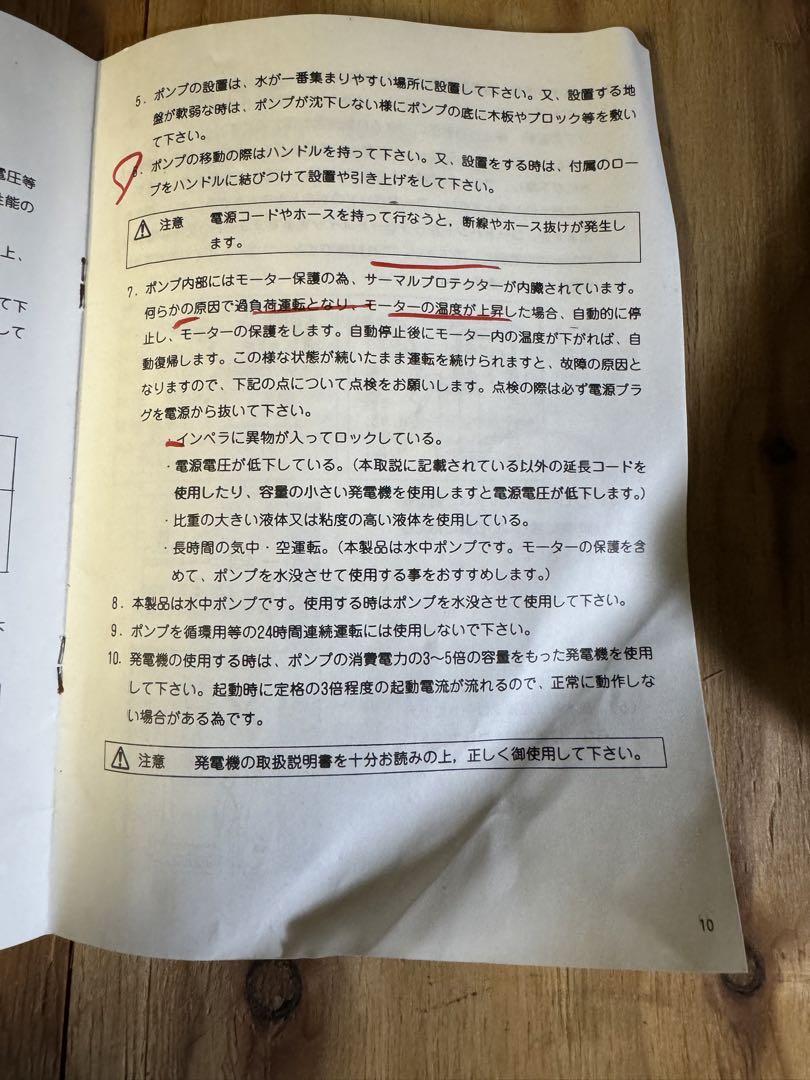 電圧等
性能の
上、
て下
して
5. ポンプの設置は、水が一番集まりやすい場所に設置して下さい。又、設置する地
盤が軟弱な時は、ポンプが沈下しない様にポンプの底に木板やブロック等を敷い
て下さい。
6. ポンプの移動の際はハンドルを持って下さい。又、設置をする時は、付属のロー
プをハンドルに結びつけて設置や引き上げをして下さい。
注意 電源コードやホースを持って行なうと，断線やホース抜けが発生し
ます。
7. ポンプ内部にはモーター保護の為、サーマルプロテクターが内臓されています。
何らかの原因で過負荷運転となり、モーターの温度が上昇した場合、自動的に停
止し、モーターの保護をします。自動停止後にモーター内の温度が下がれば、自
動復帰します。この様な状態が続いたまま運転を続けられますと、故障の原因と
なりますので、下記の点について点検をお願いします。点検の際は必ず電源プラ
グを電源から抜いて下さい。
・インペラに異物が入ってロックしている。
・電源電圧が低下している。（本取説に記載されている以外の延長コードを
使用したり、容量の小さい発電機を使用しますと電源電圧が低下します。）
・比重の大きい液体又は粘度の高い液体を使用している。
・長時間の気中・空運転。（本製品は水中ポンプです。モーターの保護を含
めて、ポンプを水没させて使用する事をおすすめします。）
8. 本製品は水中ポンプです。使用する時はポンプを水没させて使用して下さい。
9. ポンプを循環用等の24時間連続運転には使用しないで下さい。
10. 発電機の使用する時は、ポンプの消費電力の3～5倍の容量をもった発電機を使用
して下さい。起動時に定格の3倍程度の起動電流が流れるので、正常に動作しな
い場合がある為です。
注意 発電機の取扱説明書を十分お読みの上，正しく御使用して下さい。
10